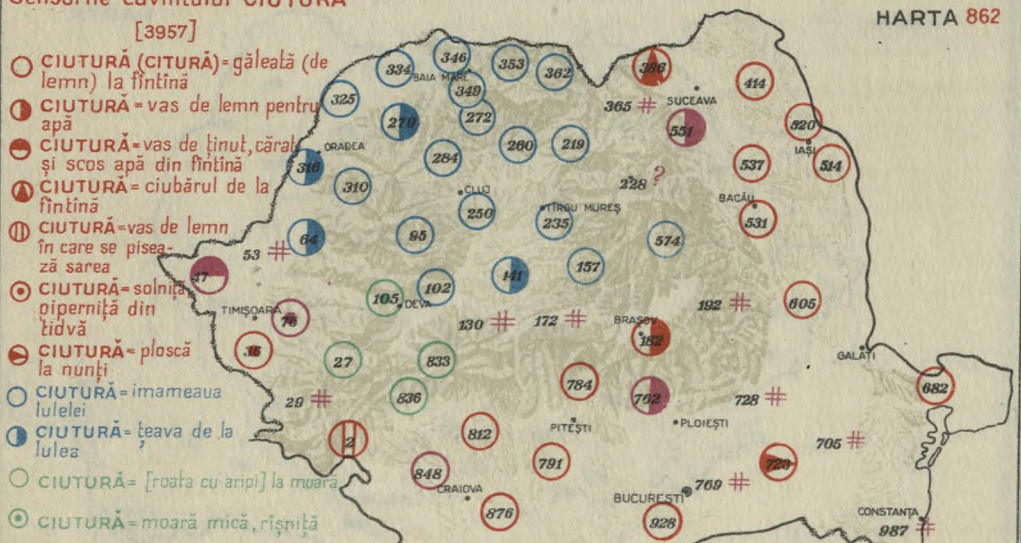 Sensurile cuvîntului CIUTURĂ
HARTA 862
[3957]
CIUTURĂ (CITURĂ) = găleată (de
lemn) la fîntînă
CIUTURĂ = vas de lemn pentru
apă
CIUTURĂ = vas de ținut, cărat
și scos apă din fîntînă
CIUTURĂ = ciubărul de la
fîntînă
CIUTURĂ = vas de lemn
în care se pisea-
ză sarea
CIUTURĂ = solniță
piperniță din
tidvă
CIUTURĂ = ploscă
la nunți
CIUTURĂ = imameaua
lulelei
CIUTURĂ = țeava de la
lulea
CIUTURĂ = [roata cu aripi] la moară
CIUTURĂ = moară mică, rîșniță
334 346 353 362 386 414
BAIA MARE
349
325
365 #
SUCEAVA
279 272 551 520
260 219
IAȘI
ORADEA
316 284 537 514
310
228 ?
CLUJ
BACĂU
250
TÎRGU MUREȘ
235 531
64 95 574
53 #
47 141 157
105 102
DEVA
192 #
605
TIMIȘOARA
76
130 #
172 #
BRAȘOV
182
36 27 833
GALAȚI
836 784 762 682
29 #
728 #
PITEȘTI
PLOIEȘTI
2 812
705 #
848 791 723
769 #
CRAIOVA
BUCUREȘTI
876 928
CONSTANȚA
987 #